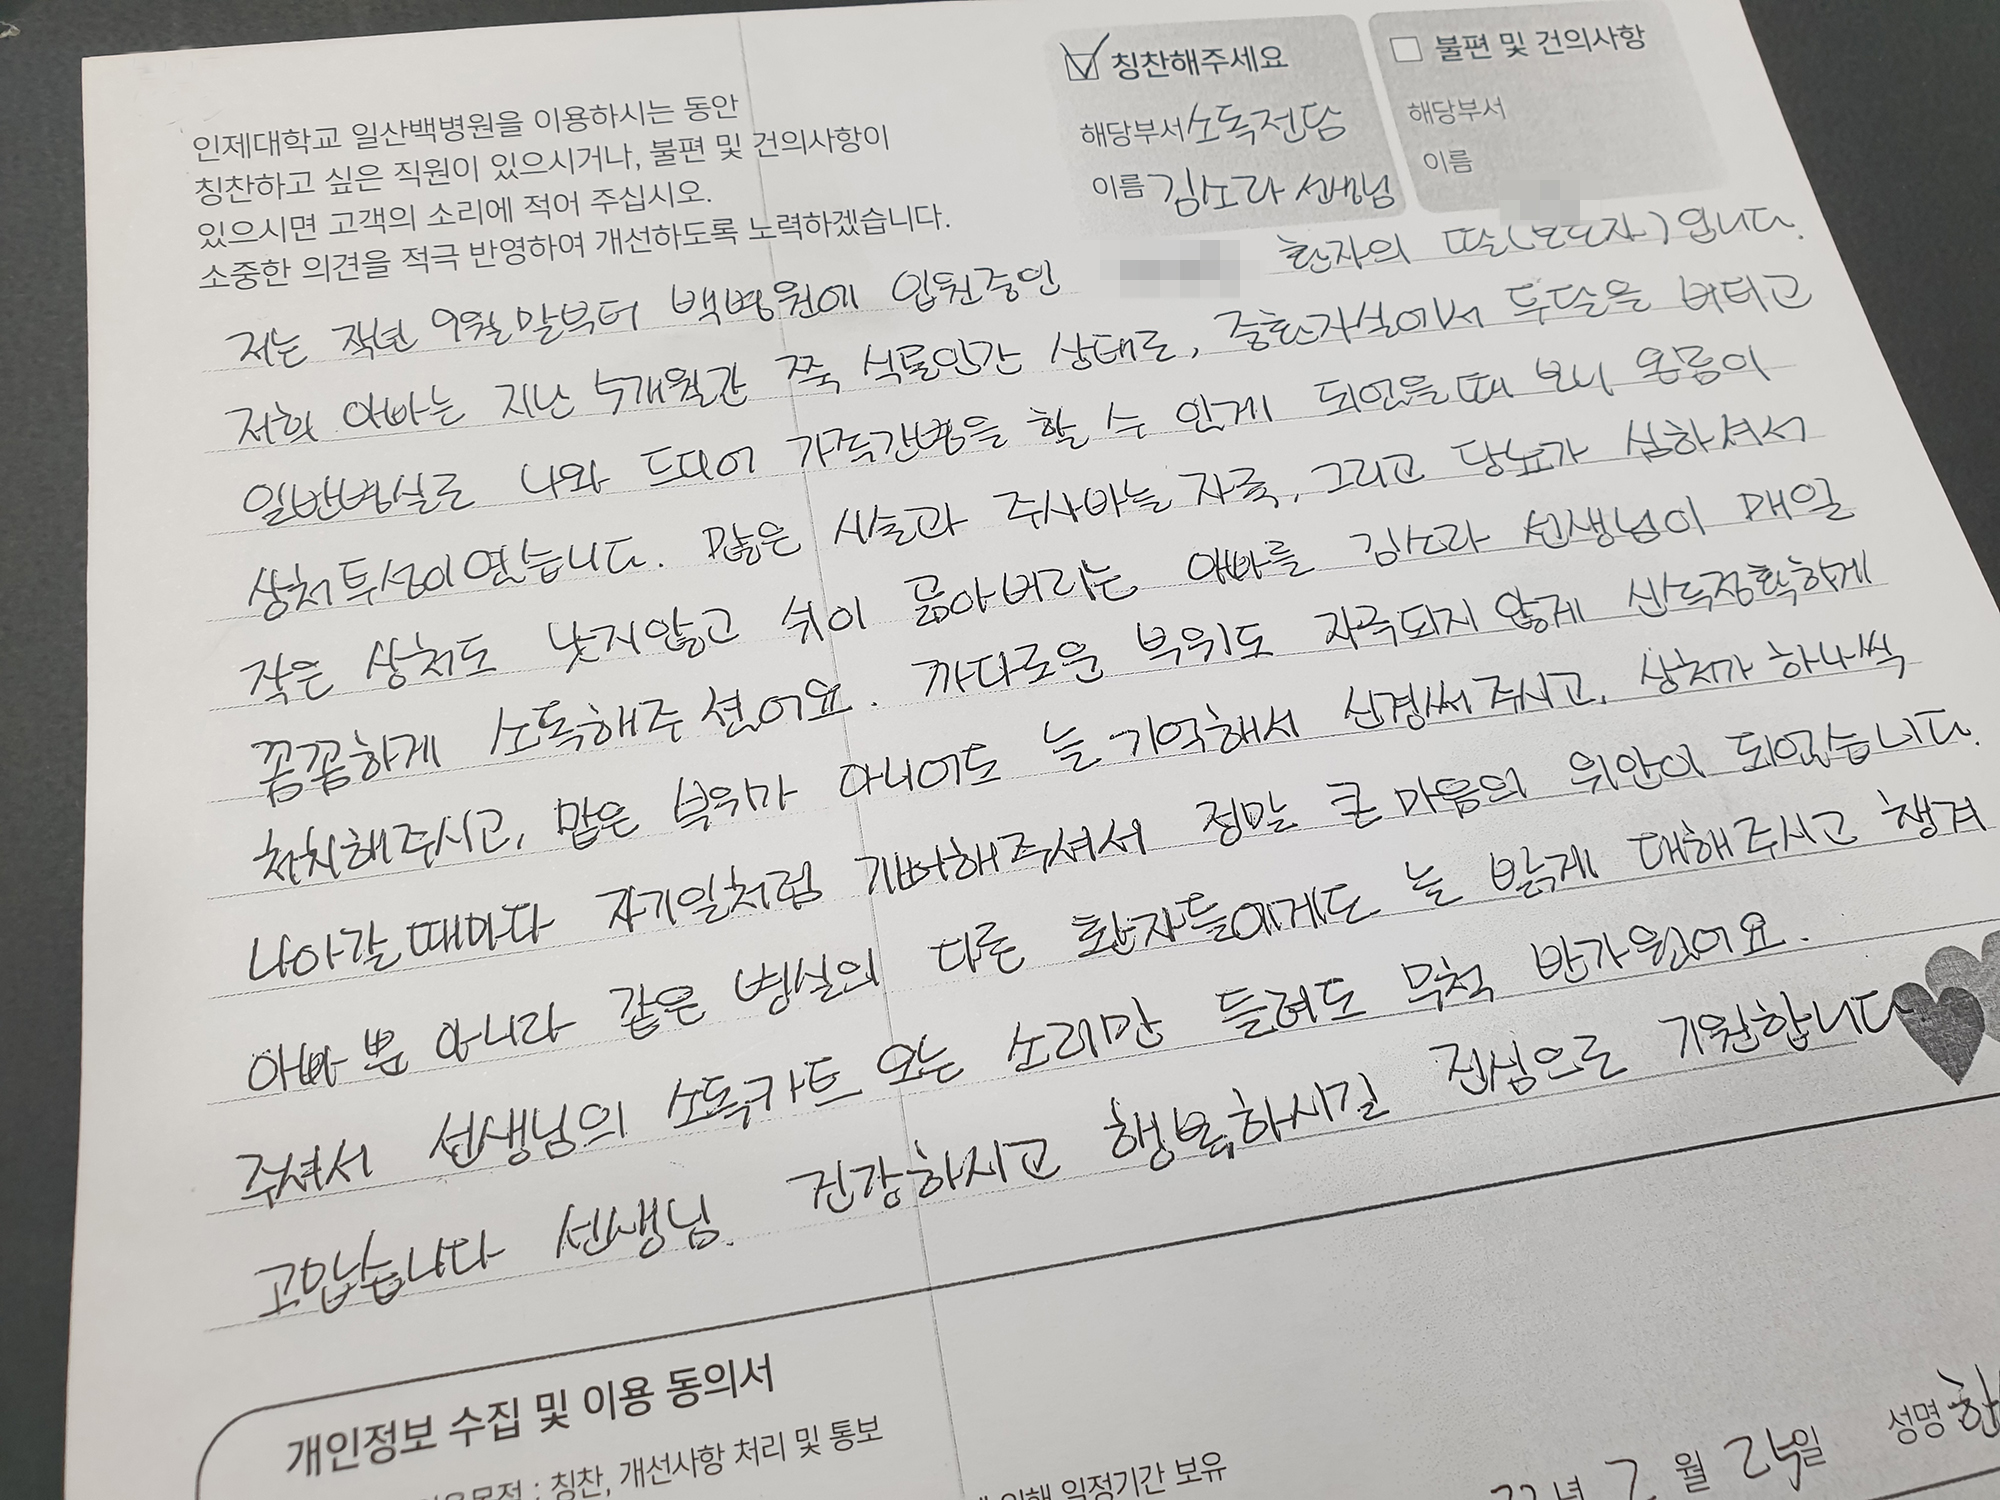 인제대학교 일산백병원을 이용하시는 동안
칭찬하고 싶은 직원이 있으시거나, 불편 및 건의사항이
있으시면 고객의 소리에 적어 주십시오.
소중한 의견을 적극 반영하여 개선하도록 노력하겠습니다.
칭찬해주세요
해당부서 소독전담
이름 김소라 선생님
불편 및 건의사항
해당부서
이름
저는 작년 9월말부터 백병원에 입원중인 환자의 딸(보호자)입니다.
저희 아빠는 지난 5개월간 쭉 식물인간 상태로, 중환자실에서 두달을 버티고
일반병실로 나와 드디어 가족간병을 할 수 있게 되었을때 보니 온몸이
상처투성이였습니다. 많은 시술과 주사바늘 자국, 그리고 당뇨가 심하셔서
작은 상처도 낫지않고 쉬이 곪아버리는 아빠를 김소라 선생님이 매일
꼼꼼하게 소독해주셨어요. 까다로운 부위도 자극되지 않게 신속정확하게
처치해주시고, 맡은 부위가 아니어도 늘 기억해서 신경써주시고, 상처가 하나씩
나아갈때마다 자기일처럼 기뻐해주셔서 정말 큰 마음의 위안이 되었습니다.
아빠뿐 아니라 같은 병실의 다른 환자들에게도 늘 밝게 대해주시고 챙겨
주셔서 선생님의 소독카트 오는 소리만 들려도 무척 반가웠어요.
고맙습니다 선생님. 건강하시고 행복하시길 진심으로 기원합니다
개인정보 수집 및 이용 동의서
: 칭찬, 개선사항 처리 및 통보
위해 일정기간 보유
22년 2월 24일 성명 한